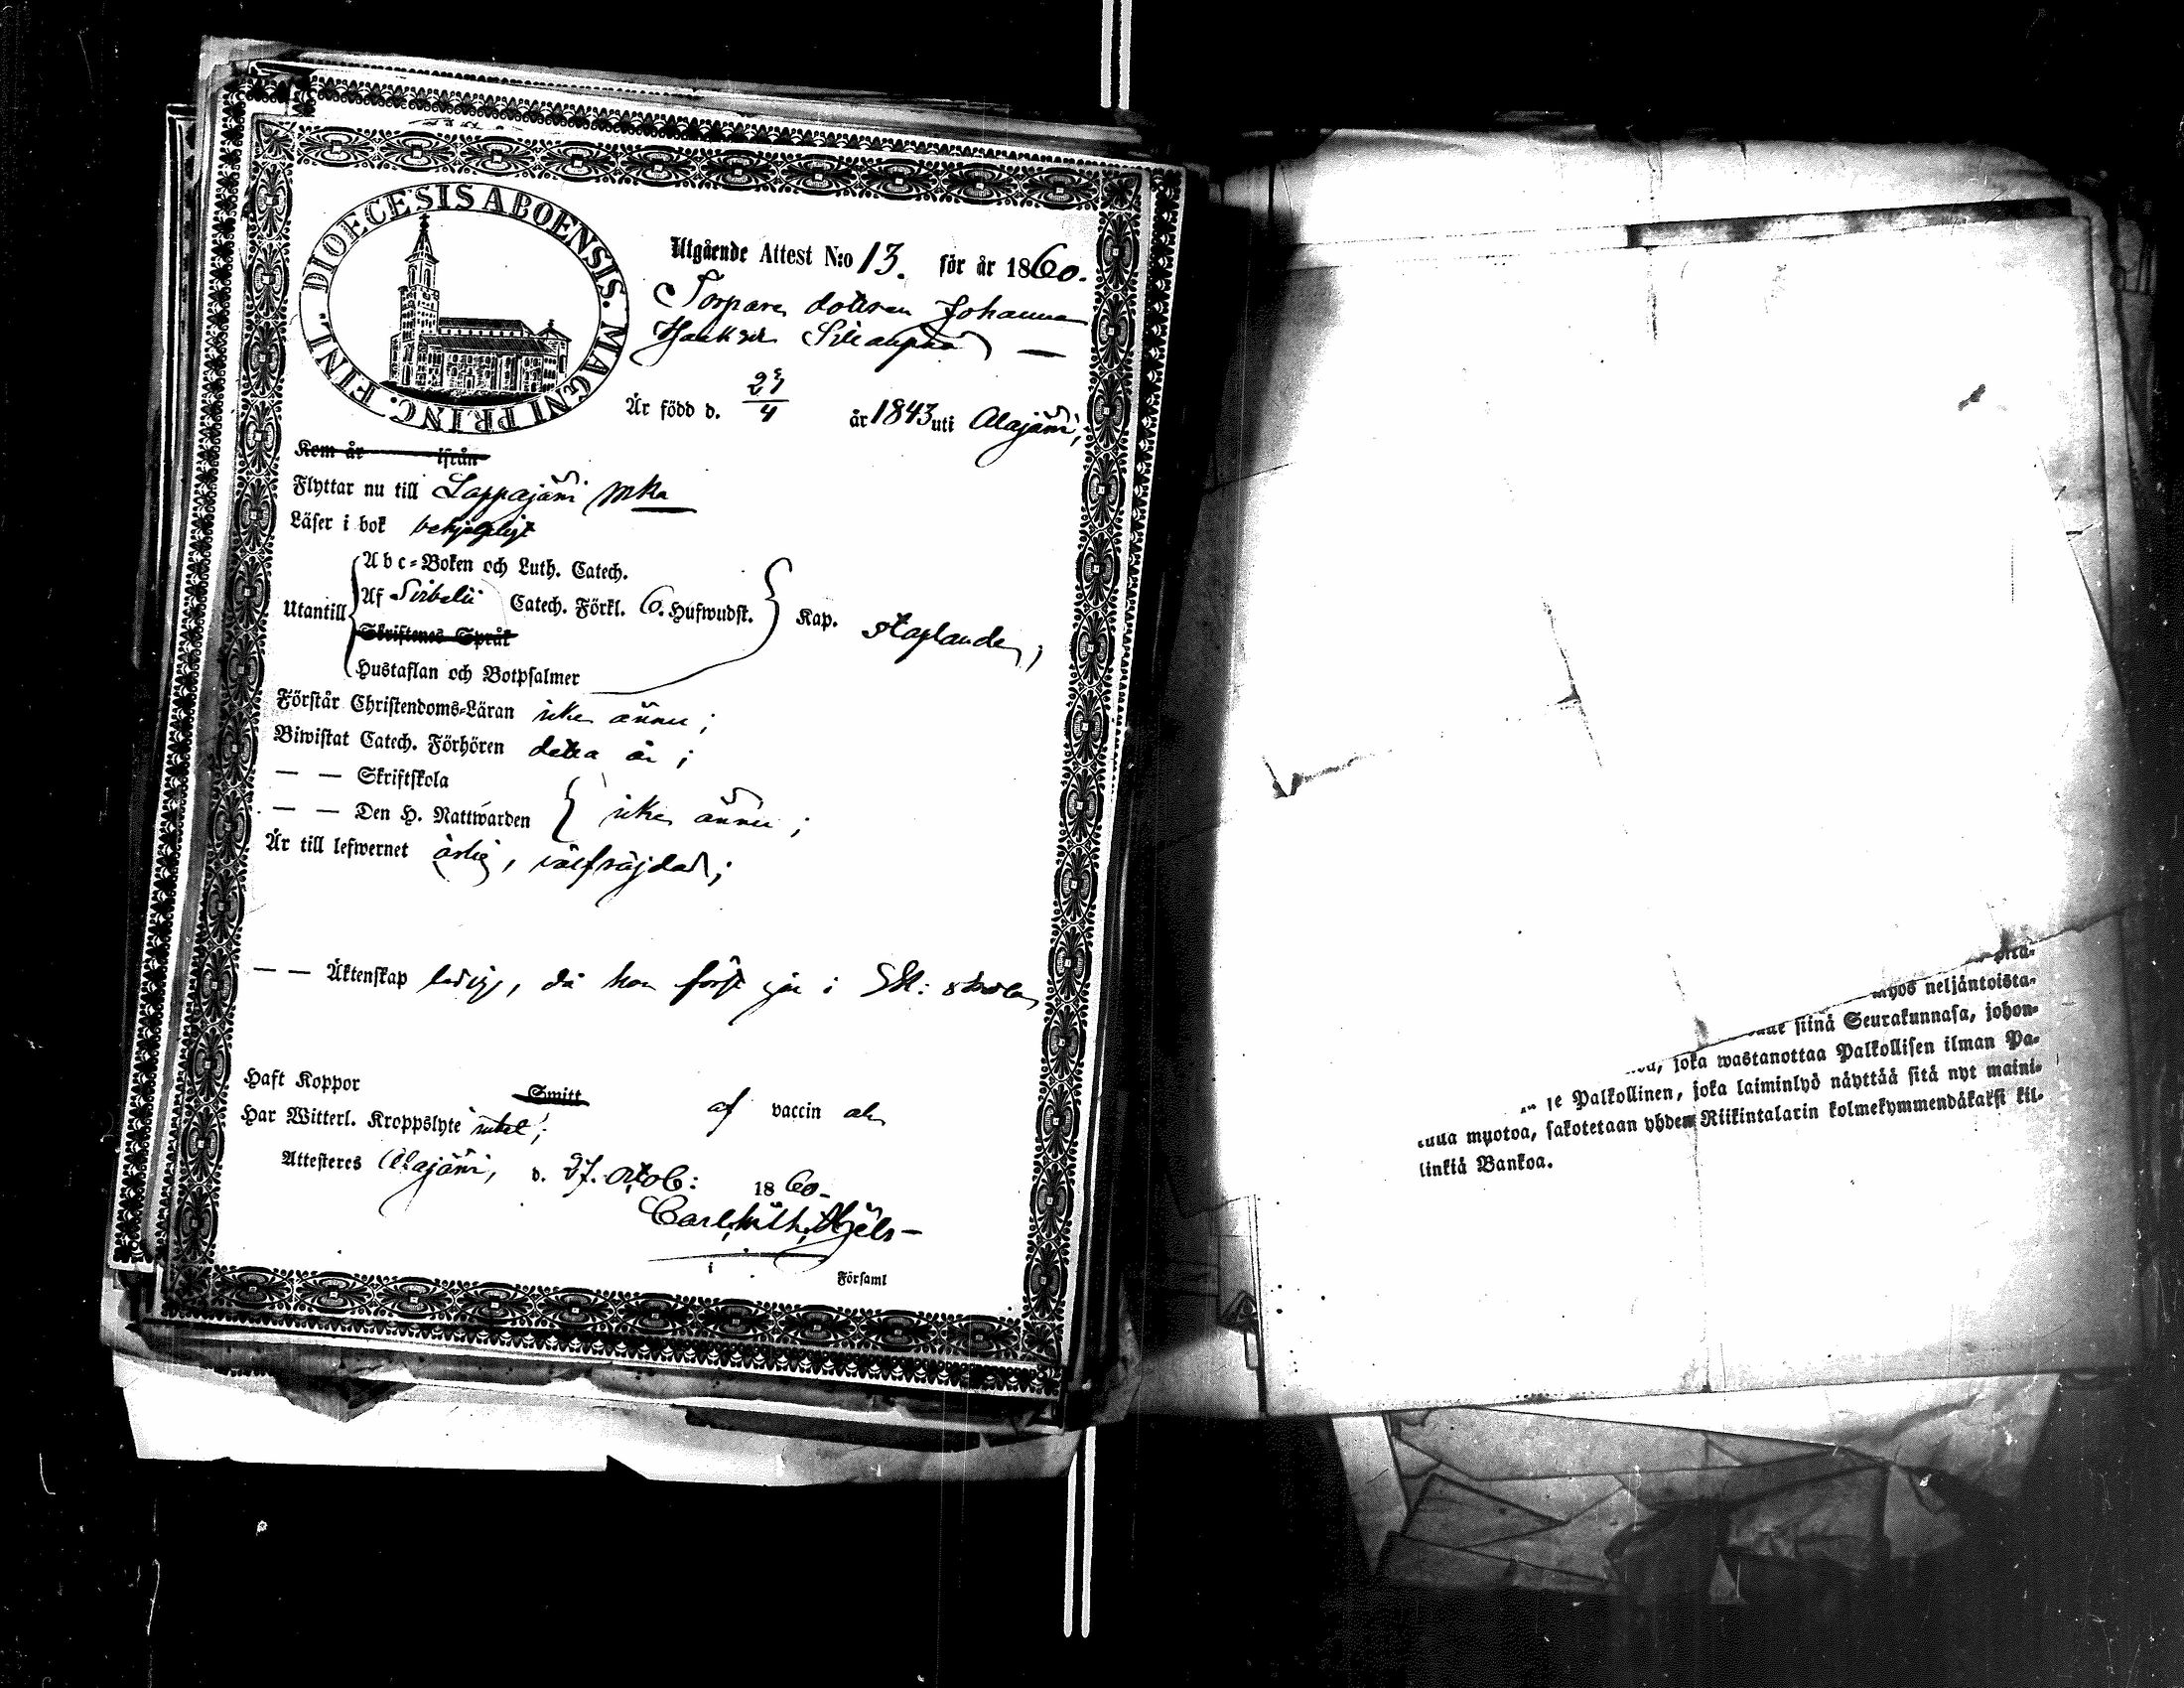 DIOECESIS ABOENSIS. MAGNI PRINC. FINL.
Utgående Attest N:o 13. för år 1860.
Torpare dottren Johanna
Är född d. 2 /4 år 1843 uti Alajärvi,
Kom år ifrån
Flyttar nu till Lappajärvi mka
Läser i bok behjelpligt
Abc-Boken och Luth. Catech.
Utantill Af Sirbelii Catech. Förkl. 6. Hufwudst. Kap. staplande,
Skriftenes Språk
Hustaflan och Botpsalmer
Förstår Christendoms-Läran icke ännu;
Biwistat Catech. Förhören detta år;
— — Skriftskola
— — Den H. Nattwarden icke ännu;
Är till lefwernet ärlig, välfräjdad;
— — Äktenskap ledig, då hon först går i Sk: skola
Haft Koppor Smitt af vaccin
Har Witterl. Kroppslyte intet;
Attesteres Alajärvi, d. 27. Octob: 1860-
Carl
i Församl
pitä-
myös neljäntoista-
siinä Seurakunnasa, johon-
joka wastanottaa Palkollisen ilman Pa-
se Palkollinen, joka laiminlyö näyttää sitä nyt maini-
tulla muotoa, sakotetaan yhden Riikintalarin kolmekymmendäkaksi kil-
linkiä Bankoa.